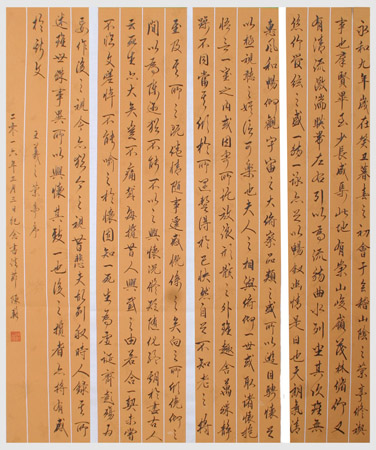 永和九年歲在癸丑暮春之初會于會稽山陰之蘭亭脩禊
事也群賢畢至少長咸集此地有崇山峻嶺茂林脩竹又
有清流激湍映帶左右引以為流觴曲水列坐其次雖無
絲竹管絃之盛一觴一詠亦足以暢敘幽情是日也天朗氣清
惠風和暢仰觀宇宙之大俯察品類之盛所以遊目騁懷足
以極視聽之娛信可樂也夫人之相與俯仰一世或取諸懷抱
悟言一室之內或因寄所託放浪形骸之外雖趣舍萬殊靜
躁不同當其欣於所遇暫得於己快然自足不知老之將
至及其所之既倦情隨事遷感慨係之矣向之所欣俛仰之
間以為陳迹猶不能不以之興懷況脩短隨化終期於盡古人
云死生亦大矣豈不痛哉每攬昔人興感之由若合一契未嘗
不臨文嗟悼不能喻之於懷固知一死生為虛誕齊彭殤為
妄作後之視今亦猶今之視昔悲夫故列敘時人錄其所
述雖世殊事異所以興懷其致一也後之攬者亦將有感
於斯文
王羲之蘭亭序
二〇一六年三月三日紀念書法節